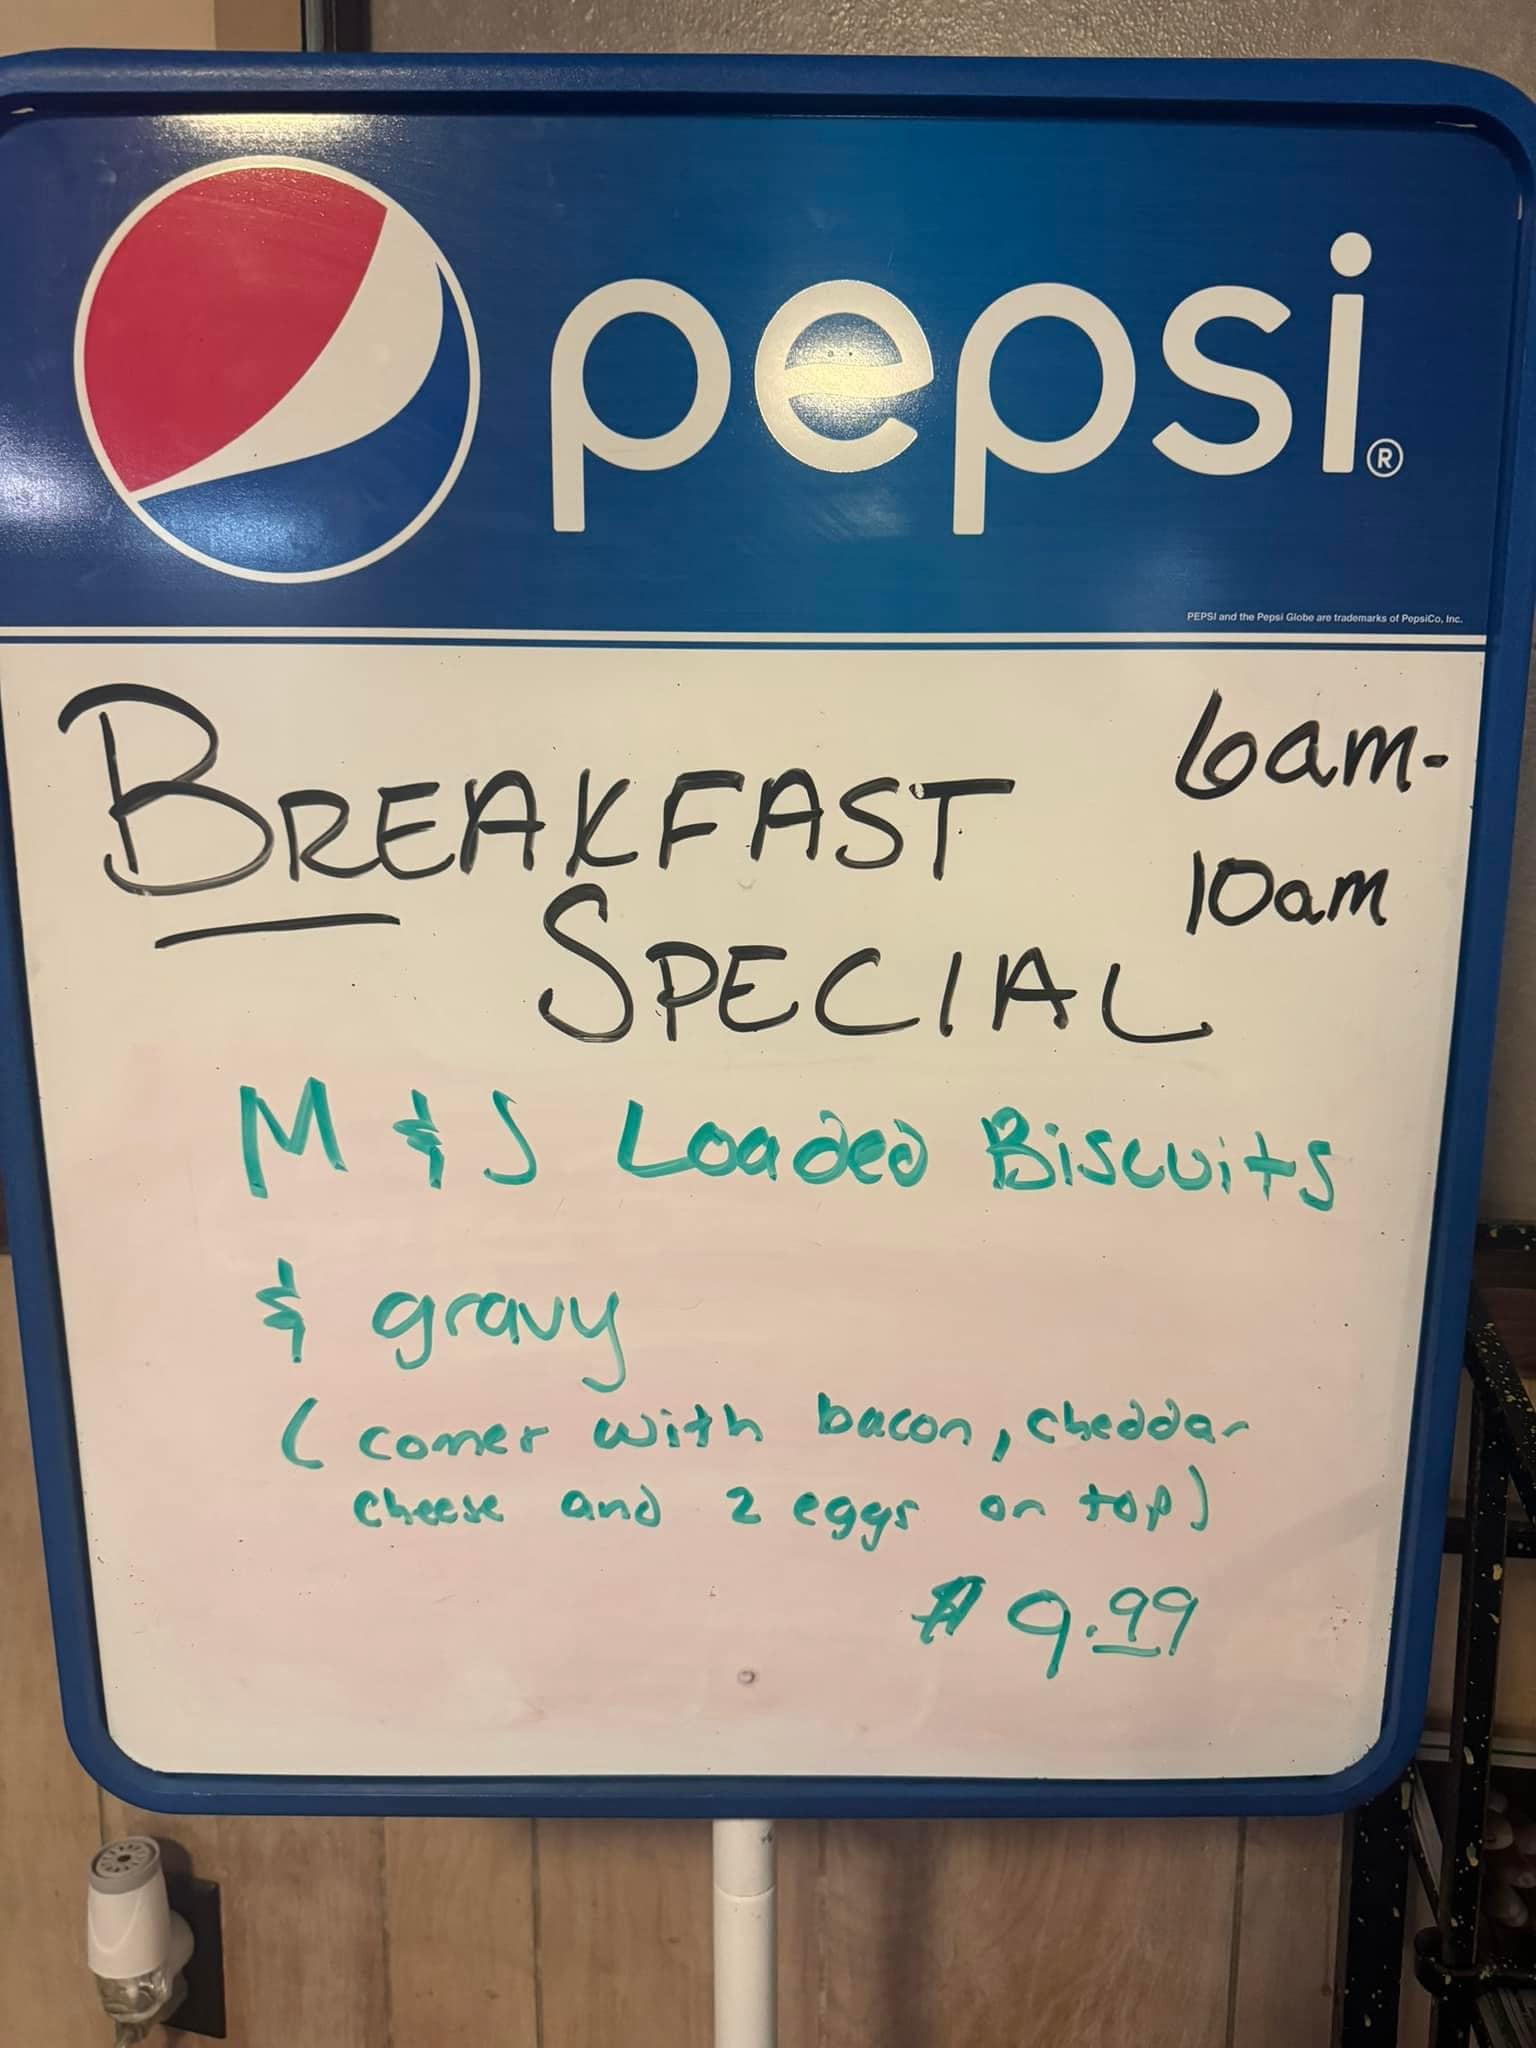 pepsi®
PEPSI and the Pepsi Globe are trademarks of PepsiCo, Inc.
BREAKFAST
6am-
10am
SPECIAL
M & J Loaded Biscuits
& gravy
(comes with bacon, cheddar
cheese and 2 eggs on top)
$ 9.99